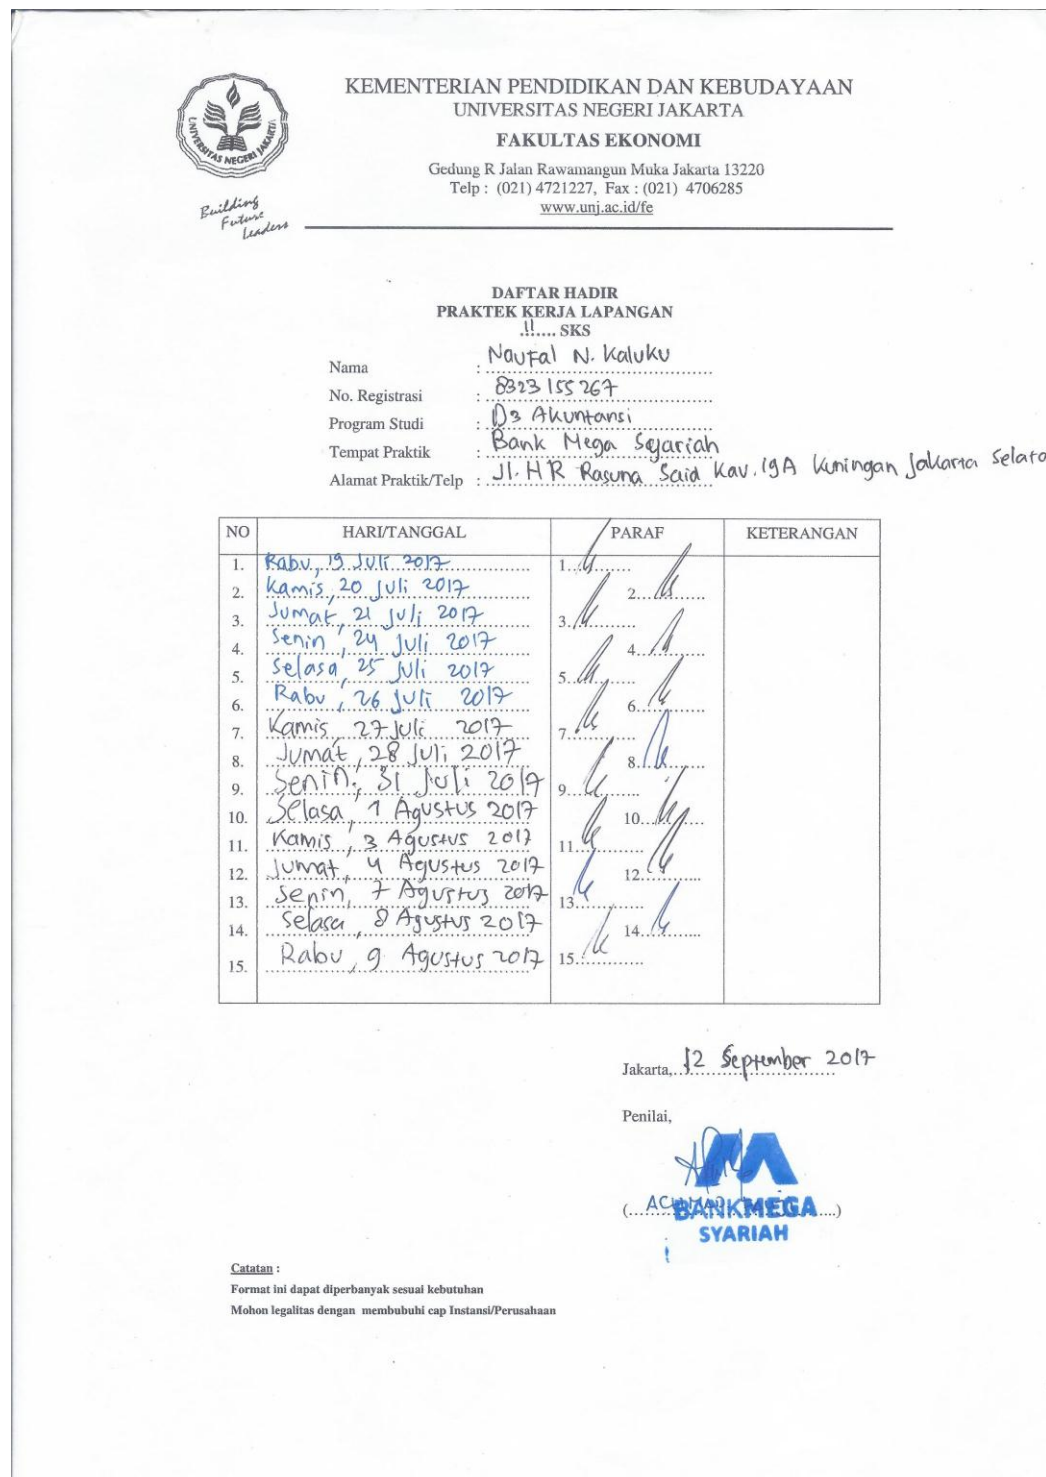 KEMENTERIAN PENDIDIKAN DAN KEBUDAYAAN
UNIVERSITAS NEGERI JAKARTA
FAKULTAS EKONOMI
Gedung R Jalan Rawamangun Muka Jakarta 13220
Telp : (021) 4721227, Fax : (021) 4706285
www.unj.ac.id/fe
UNIVERSITAS NEGERI JAKARTA
Building
Future
Leaders
DAFTAR HADIR
PRAKTEK KERJA LAPANGAN
.!!.... SKS
Nama : Naufal N. Kaluku
No. Registrasi : 8323155267
Program Studi : D3 Akuntansi
Tempat Praktik : Bank Mega Syariah
Alamat Praktik/Telp : Jl. HR Rasuna Said Kav. 19A Kuningan Jakarta Selata
NO HARI/TANGGAL PARAF KETERANGAN
1. Rabu, 19 Juli 2017 1.
2. Kamis, 20 Juli 2017 2.
3. Jumat, 21 Juli 2017 3.
4. Senin, 24 Juli 2017 4.
5. Selasa, 25 Juli 2017 5.
6. Rabu, 26 Juli 2017 6.
7. Kamis, 27 Juli 2017 7.
8. Jumat, 28 Juli 2017 8.
9. Senin, 31 Juli 2017 9.
10. Selasa, 1 Agustus 2017 10.
11. Kamis, 3 Agustus 2017 11.
12. Jumat, 4 Agustus 2017 12.
13. Senin, 7 Agustus 2017 13.
14. Selasa, 8 Agustus 2017 14.
15. Rabu, 9 Agustus 2017 15.
Jakarta, 12 September 2017
Penilai,
BANK MEGA
SYARIAH
Catatan :
Format ini dapat diperbanyak sesuai kebutuhan
Mohon legalitas dengan membubuhi cap Instansi/Perusahaan